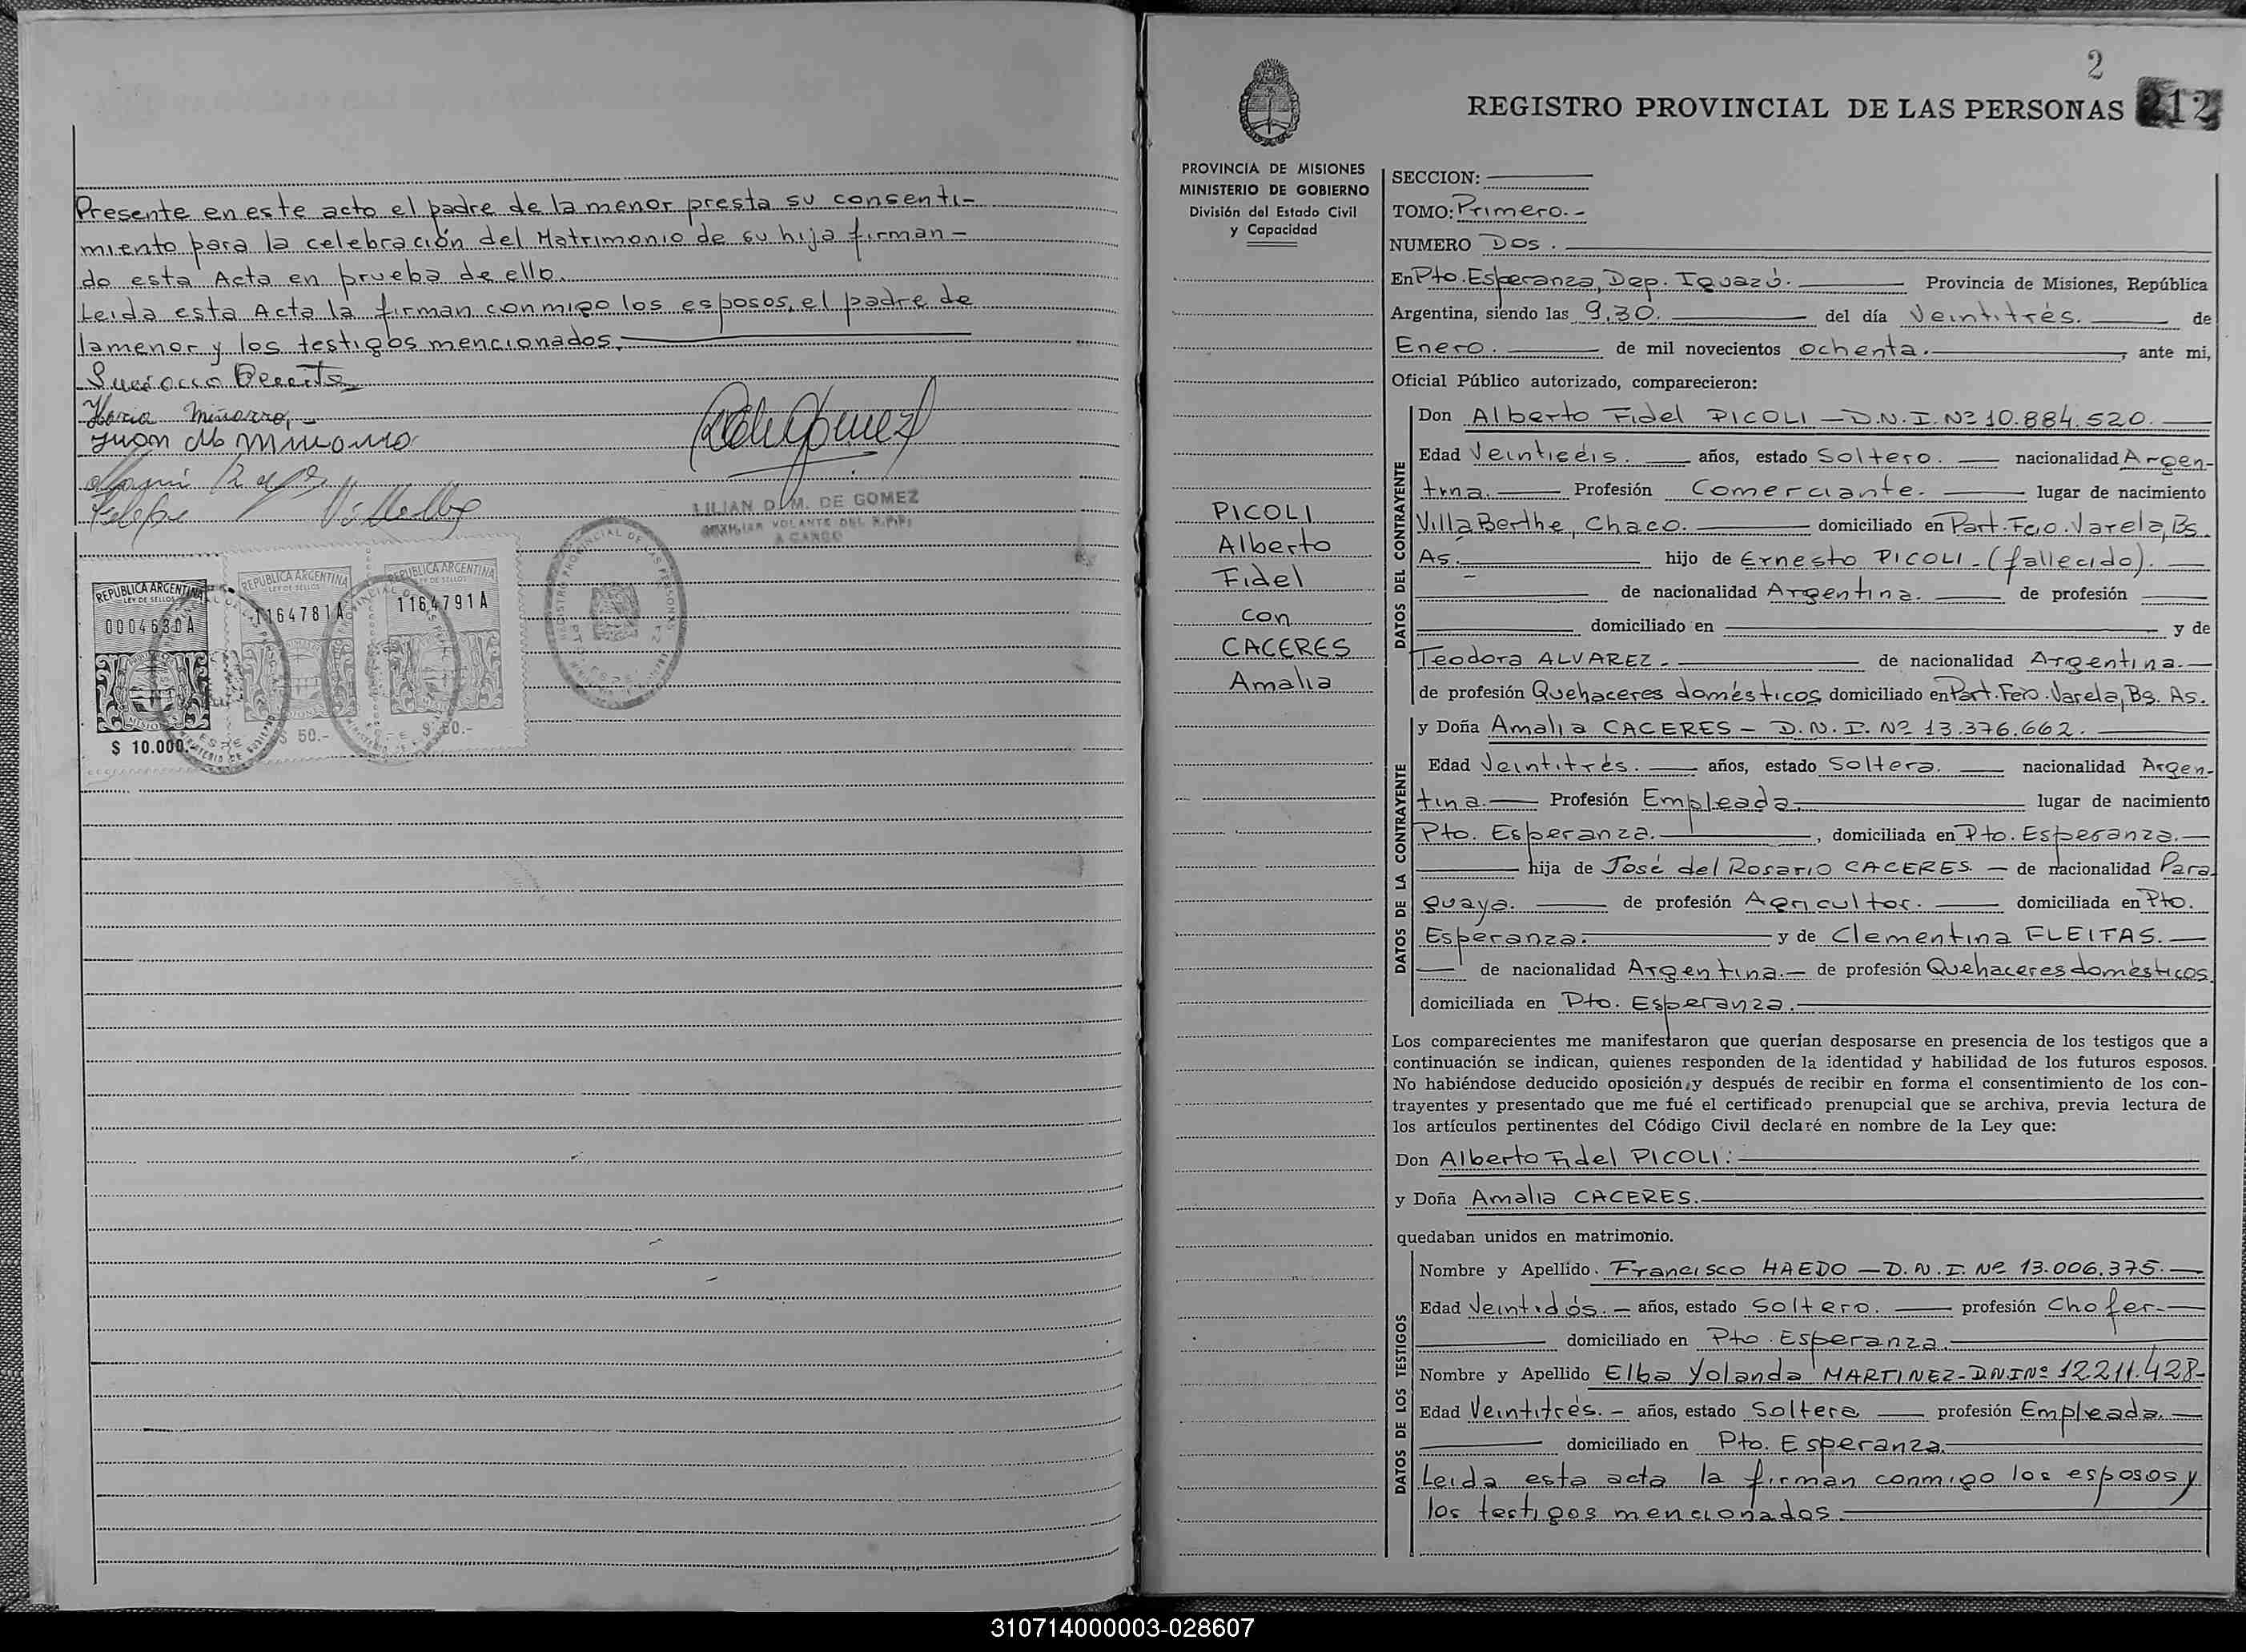 Presente en este acto el padre de la menor presta su consenti-
miento para la celebración del Matrimonio de su hija firman-
do esta Acta en prueba de ello.
Leida esta Acta la firman conmigo los esposos, el padre de
la menor y los testigos mencionados.
Maria Miñarro
Juan
Felipe Villalba
LILIAN D. M. DE GOMEZ
AUXILIAR VOLANTE DEL R.P.P.
A CARGO
REPUBLICA ARGENTINA
LEY DE SELLOS
0004630A
MISIONES
$ 10.000.-
REPUBLICA ARGENTINA
LEY DE SELLOS
1164781A
$ 50.-
REPUBLICA ARGENTINA
LEY DE SELLOS
1164791A
$ 50.-
2
REGISTRO PROVINCIAL DE LAS PERSONAS 212
PROVINCIA DE MISIONES
MINISTERIO DE GOBIERNO
División del Estado Civil
y Capacidad
PICOLI
Alberto
Fidel
con
CACERES
Amalia
SECCION:
TOMO: Primero.-
NUMERO DOS.
En Pto. Esperanza, Dep. Iguazú. Provincia de Misiones, República
Argentina, siendo las 9,30. del día Veintitrés. de
Enero. de mil novecientos ochenta. , ante mi,
Oficial Público autorizado, comparecieron:
DATOS DEL CONTRAYENTE
Don Alberto Fidel PICOLI - D.N.I. Nº 10.884.520.
Edad Veintiséis. años, estado Soltero. nacionalidad Argen-
tina. Profesión Comerciante. lugar de nacimiento
Villa Berthe, Chaco. domiciliado en Part. Fcio. Varela, Bs.
As. hijo de Ernesto PICOLI - (fallecido).
de nacionalidad Argentina. de profesión
domiciliado en y de
Teodora ALVAREZ - de nacionalidad Argentina.
de profesión Quehaceres domésticos domiciliado en Part. Fcio. Varela, Bs. As.
DATOS DE LA CONTRAYENTE
y Doña Amalia CACERES - D.N.I. Nº 13.376.662.
Edad Veintitrés. años, estado Soltera. nacionalidad Argen-
tina. Profesión Empleada. lugar de nacimiento
Pto. Esperanza. , domiciliada en Pto. Esperanza.
hija de José del Rosario CACERES. - de nacionalidad Para
guaya. de profesión Agricultor. domiciliada en Pto.
Esperanza. y de Clementina FLEITAS.
de nacionalidad Argentina. - de profesión Quehaceres domésticos
domiciliada en Pto. Esperanza.
Los comparecientes me manifestaron que querían desposarse en presencia de los testigos que a
continuación se indican, quienes responden de la identidad y habilidad de los futuros esposos.
No habiéndose deducido oposición, y después de recibir en forma el consentimiento de los con-
trayentes y presentado que me fué el certificado prenupcial que se archiva, previa lectura de
los artículos pertinentes del Código Civil declaré en nombre de la Ley que:
Don Alberto Fidel PICOLI.
y Doña Amalia CACERES.
quedaban unidos en matrimonio.
DATOS DE LOS TESTIGOS
Nombre y Apellido. Francisco HAEDO - D.N.I. Nº 13.006.375.
Edad Veintidós. - años, estado Soltero. profesión Chofer.
domiciliado en Pto. Esperanza.
Nombre y Apellido Elba Yolanda MARTINEZ - D.N.I Nº 12.211.428-
Edad Veintitrés. - años, estado Soltera profesión Empleada.
domiciliado en Pto. Esperanza.
Leida esta acta la firman conmigo los esposos y
los testigos mencionados.
310714000003-028607